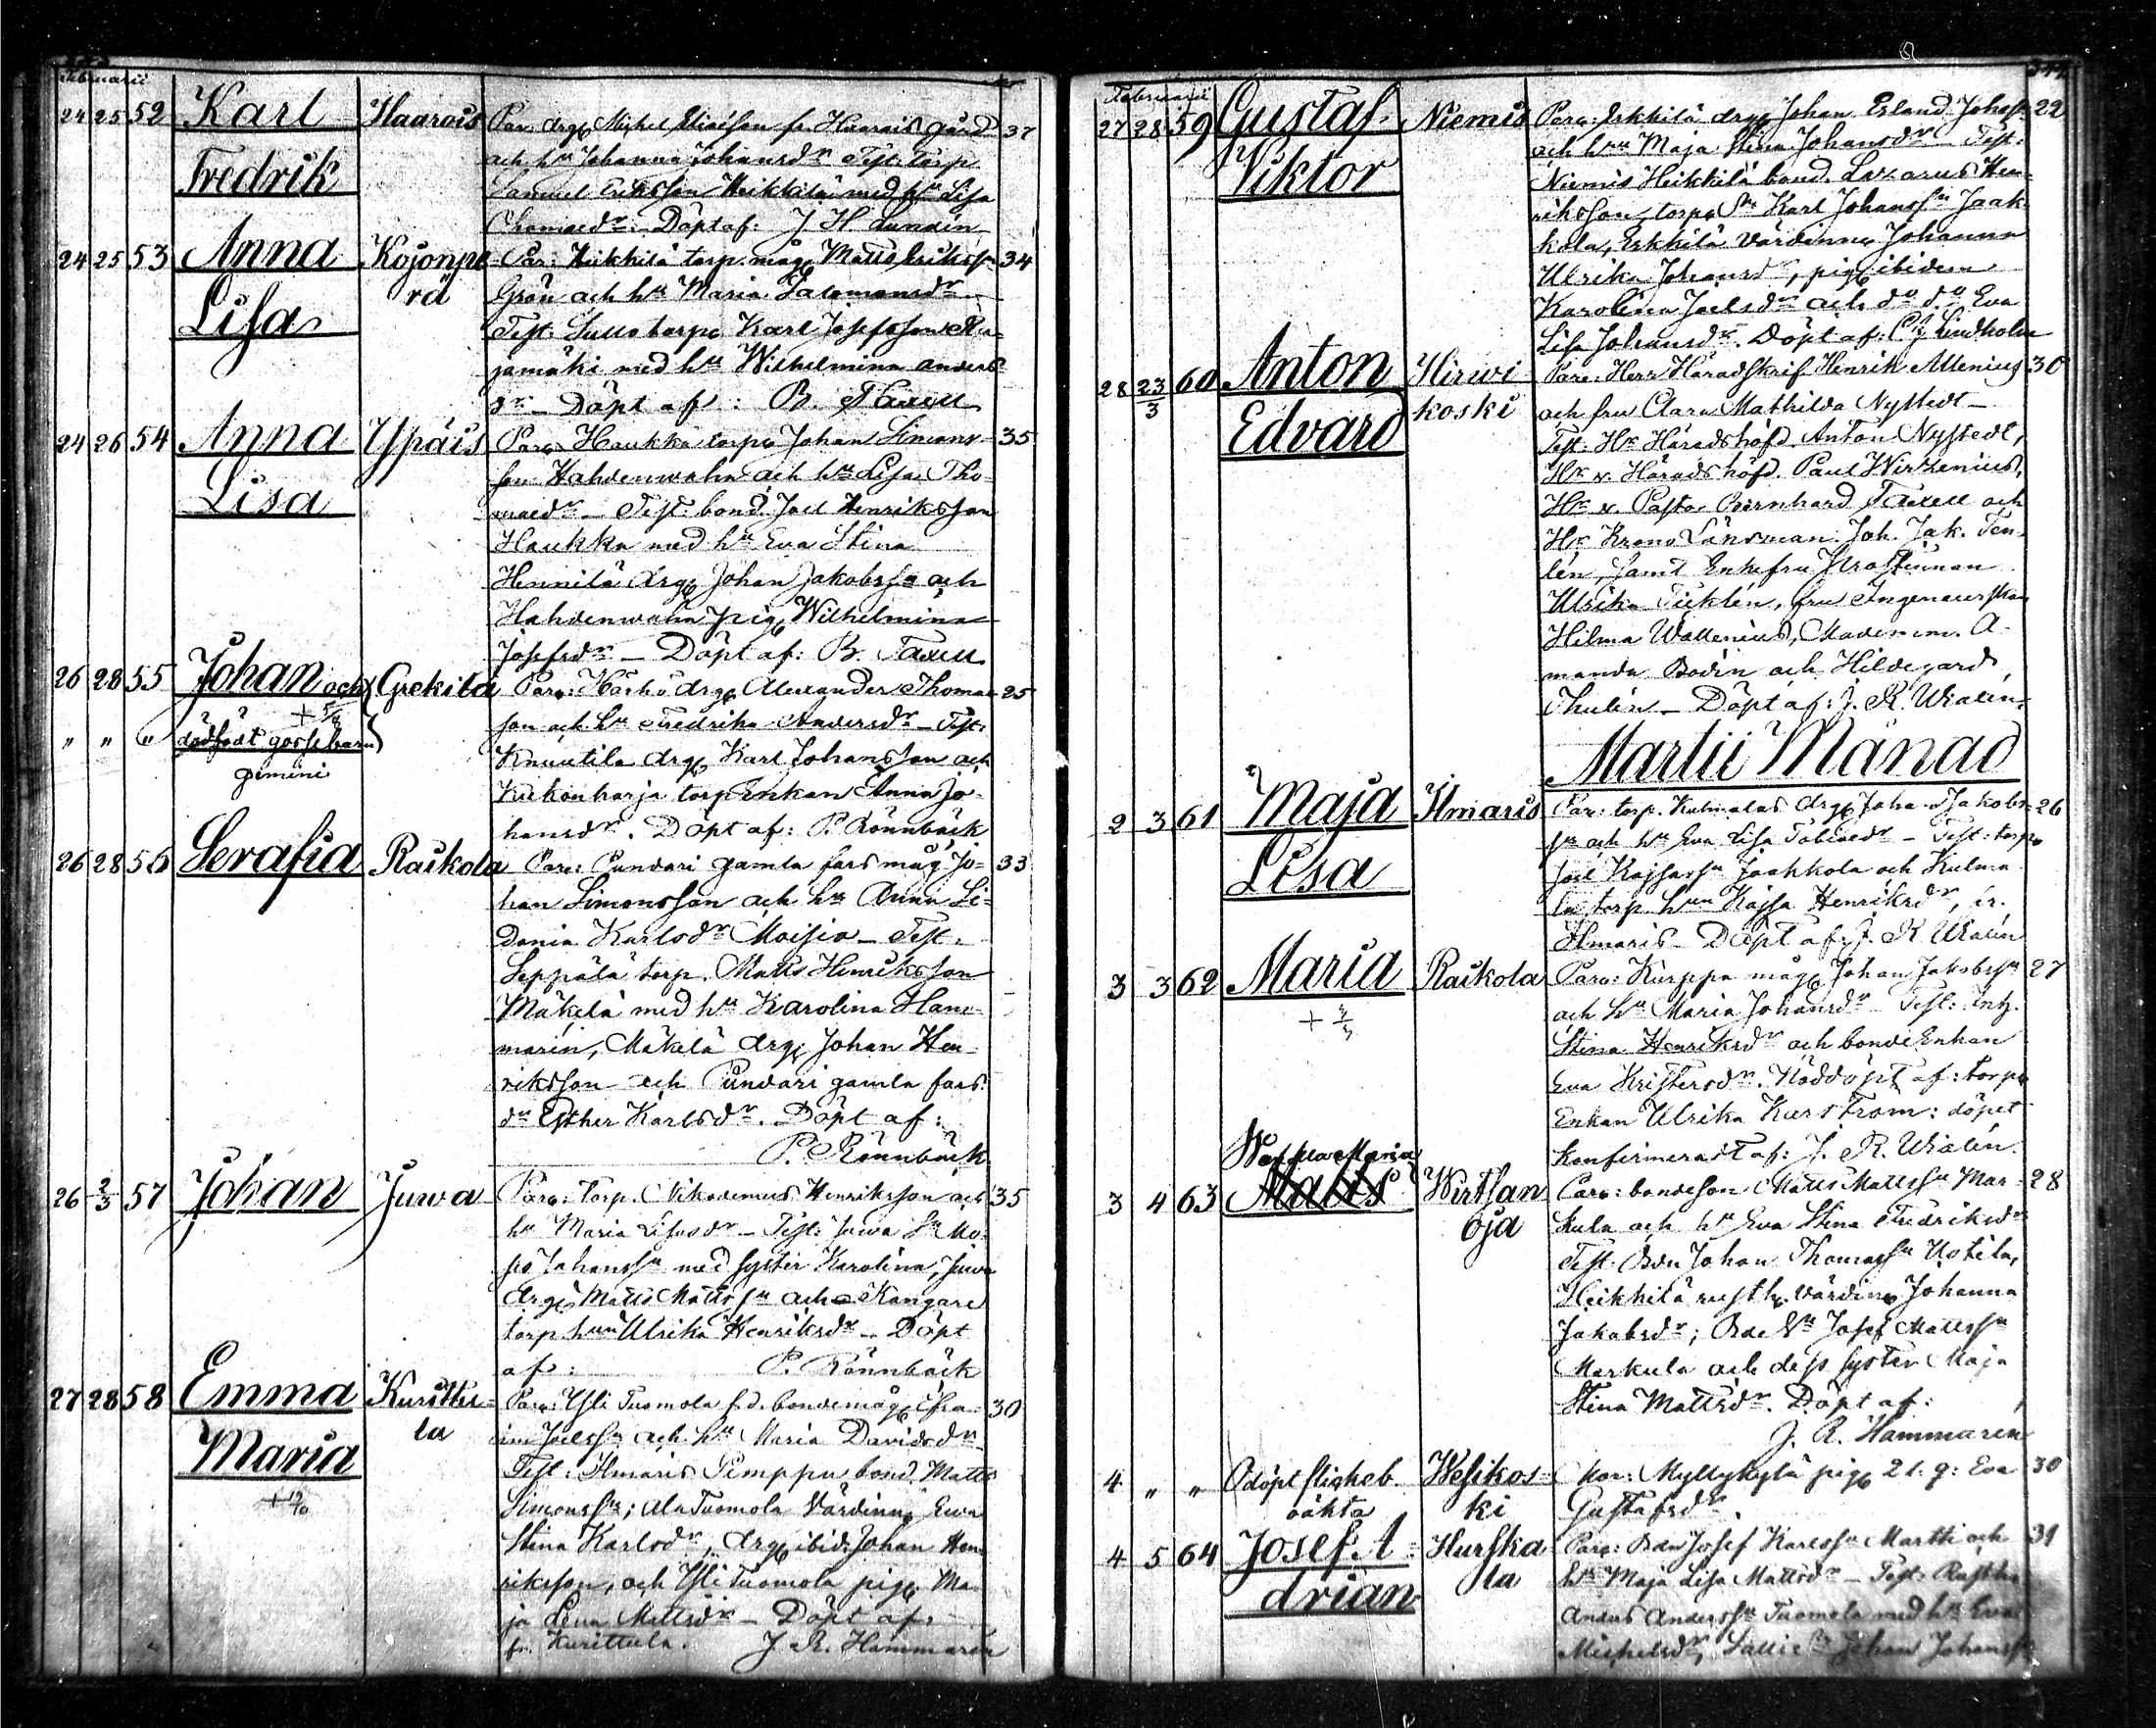 Februarii
24 25 52 Karl Haarois Par: drg Michel Eliaisson fr. Haarois gård 37
och hu Johanna Johansdr Test: torp
Fredrik Samuel Eriksson Heikkilä med hu Lisa
Thomasdr. Döpt af: J. H. Lunden
24 25 53 Anna Kojonpe Par: Heikkilä torp. måg Matts Eriksson 34
rä Grön och hu Maria Salomonsdr
Lisa Test: torp Karl Josefsson
jamäki med hu Wilhelmina Anders
dr – Döpt af: B. Taxell
24 26 54 Anna Ypäis Par: Haukka torp Johan Simons- 35
son Hahdenwaha och hu Lisa Tho
Lisa maedr – Test: bond. Joel Henriksson
Haukka med hu Eva Stina
Hennilä drg Johan Jakobsson och
Hahdenwaha pig Wilhelmina
Josefsdr – Döpt af: B. Taxell
26 28 55 Johan och Grekilä Par: drg Alexander Thomas 25
son och hu Fredrika Andersdr – Test:
" " " dödfödt gossebarn Knuutila drg Karl Johansson och
gemini Kukonharja torp enkan Anna Jo-
hansdr. Döpt af: P. Rönnbäck
26 28 56 Serafia Raikola Par: Pundari gamla fars måg Jo- 33
han Simonsson och hu Anna Li-
dania Karlsdr Moisio – Test:
Seppälä torp. Matts Henriksson
Mäkelä med hu Karolina Ham-
marin, Mäkelä drg Johan Hen-
riksson och Pundari gamla fars
dr Esther Karlsdr. Döpt af:
P. Rönnbäck
26 2/3 57 Johan Juwa Par: Torp. Nikodemus Henriksson och 35
hu Maria Lisasdr – Test: Juwa Sn
Johanssn med syster Karolina, Juwa
drg Matts Mattssn och Kangare
torp. hun Ulrika Henriksdr – Döpt
af: P. Rönnbäck
27 28 58 Emma Kuritu- Par: Yli Tuomola f.d. bondemåg Efra- 30
la im Joelssn och hu Maria Davidsdr
Maria Test: Ilmaris Pimppu bond. Matts
Simonssn; Ala Tuomola Värdinna Eva
Stina Karlsdr, drg ibid. Johan Hen
riksson, och Yli Tuomola pig Ma
ja Lena Mattsdr – Döpt af:
fr. Kurittula. J. R. Hammarén
Februarii
27 28 59 Gustaf Niemis Par: Erkkilä drg Johan Erland Johss 22
och hru Maja Stina Johansdr – Test:
Viktor Niemis Heikkilä bond. Lazarus Hen-
riksson, torp. Sn Karl Johanssn Jaak-
kola, Erkkilä värdinna Johanna
Ulrika Johansdr, pig ibidem
Karolina Joelsdr och do do Eva
Lisa Johansdr. Döpt af: Lindholm
28 23/3 60 Anton Hirwi Par: Herr Häradskrif Henrik Allenius 30
koski och fru Clara Mathilda Nystedt –
Edvard Test: Hr Häradshöfd. Anton Nystedt,
Hr v. Häradshöfd. Paul Wirzenius,
Hr v. Pastor Bernhard Taxell och
Hr Krono Länsman Joh. Jak. Ten-
lén, samt Enkefru Prostinnan
Ulrika Ticklén, fru Ingenieurskan
Hilma Wallenius, Mademm. A-
manda Bodin och Hildegard
Thulin – Döpt af: J. R. Wialén
Martii Månad
2 3 61 Maja Ilmaris Par: torp. Kulmalas drg Johan Jakobs- 26
sn och hu Eva Lisa Tobiasdr – Test: torp
Lisa Joel Kajssn Jaakkola och Kulma
la torp. hrun Kajsa Henriksdr, fr.
Ilmaris – Döpt af: J. R. Wialén
3 3 62 Maria Raikola Par: Kurppa måg Johan Jakobssn 27
och hu Maria Johansdr – Test: Inh.
Stina Henriksdr och bonde Enkan
Eva Kristersdr. Nöddöpt af: torp
Enkan Ulrika Kurström: döpet
konfirmeradt af: J. R. Wialén
3 4 63 Maria Matts Wirtsan Par: bondeson Matts Mattssn Mar- 28
oja kula och hu Eva Stina Fredriksdr
Test: Bdn Johan Thomassn Uotila,
Heikkilä rusth. värdinna Johanna
Jakobsdr; Bde Sn Josef Mattssn
Markula och dess syster Maja
Stina Mattsdr. Döpt af:
J. R. Hammarén
4 " " Odöpt flickeb. Wesikos- Mor: Myllykylä pig 21. g: Eva 30
oäkta ki Gustafsdr
4 5 64 Josef A- Hurska Par: Bdn Josef Karlssn Martti och 31
drian la hu Maja Lisa Mattsdr – Test: Rusth.
Anders Anderssn Tuomola med hu Eva
Michelsdr, Johan Johanss